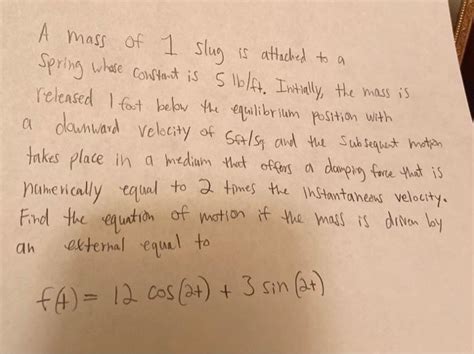 A mass of 1 slug is attached to a
spring whose constant is 5 lb/ft. Initially, the mass is
released 1 foot below the equilibrium position with
a downward velocity of 5ft/sq and the subsequent motion
takes place in a medium that offers a damping force that is
numerically equal to 2 times the instantaneous velocity.
Find the equation of motion if the mass is driven by
an external equal to
f(t) = 12 cos(2t) + 3 sin(2t)